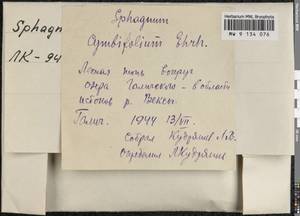 Sphagnum
ЛК-94
Herbarium MW, Bryophyta
MW 9 134 076
Sphagnum
cymbifolium Ehrh.
Лесная топь вокруг
озера Галичского - в области
истоков р. Вексы.
Галич. 1944 13/VII.
Собрал Кудряшов Л.В.
Определил Л.Кудряшов